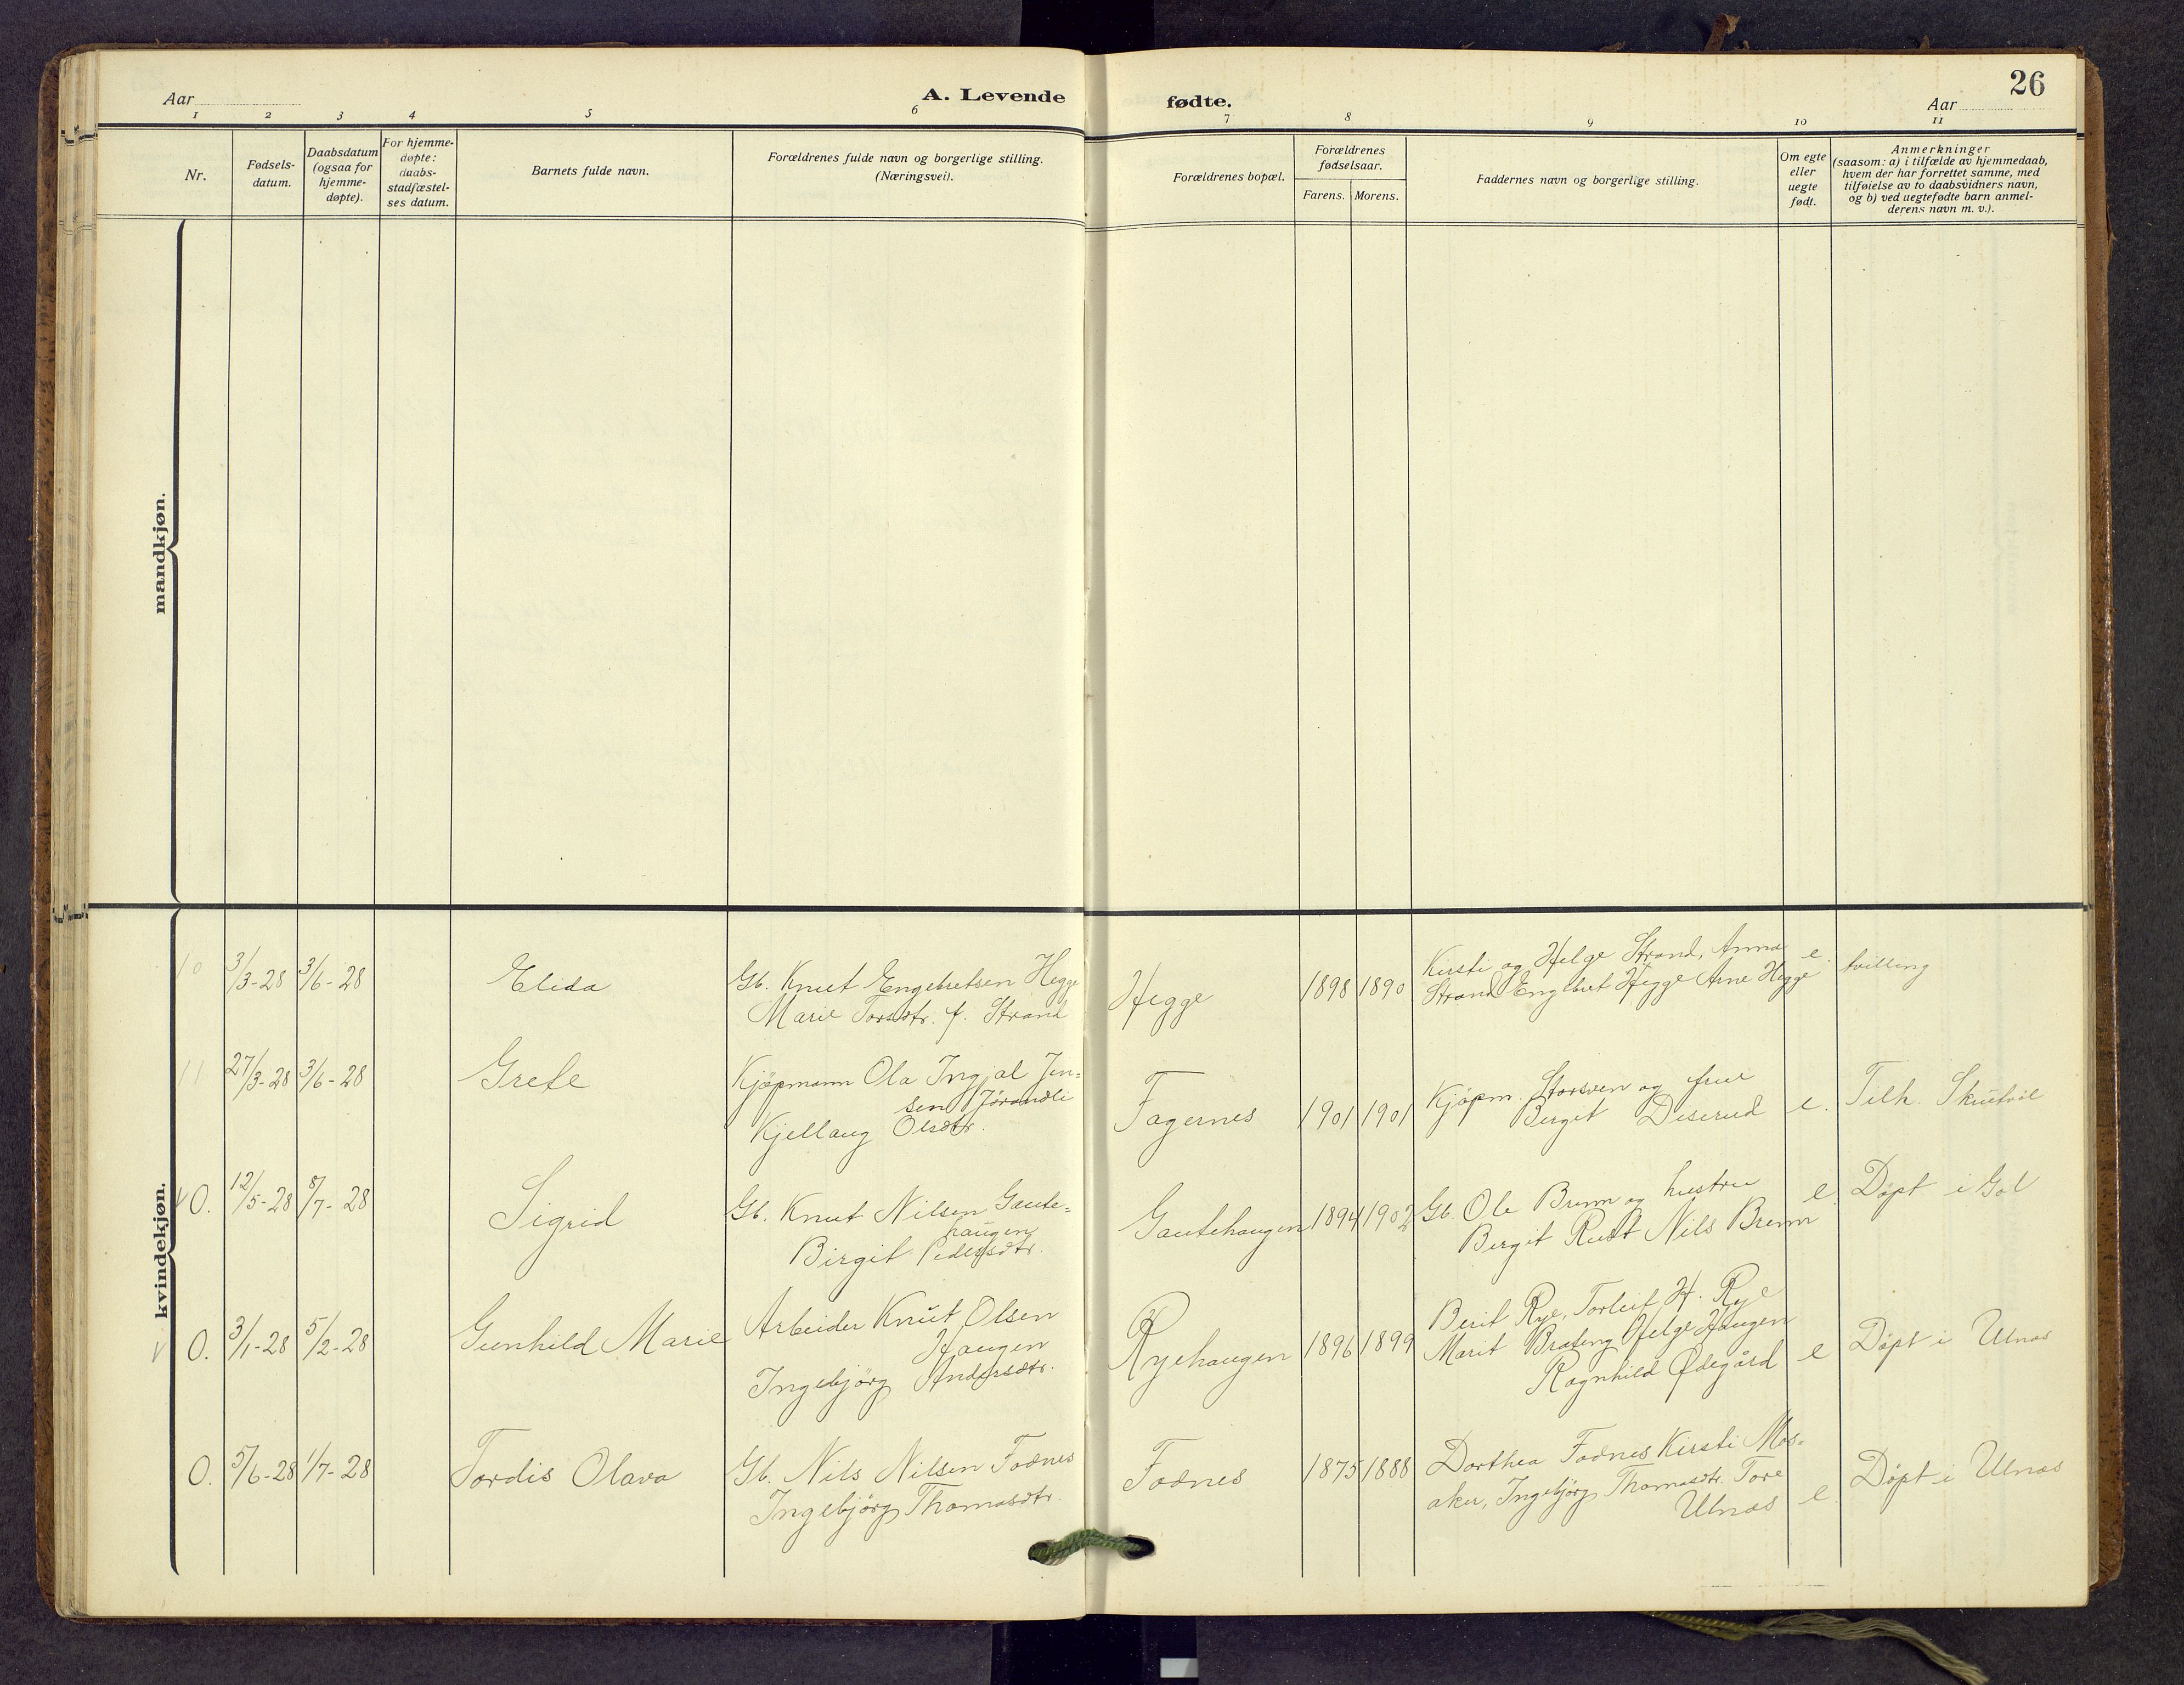 26
Aar
A. Levende
fødte.
Aar
1 2 3 4 5 6 7 8 9 10 11
Nr.
Fødsels-
datum.
Daabsdatum
(ogsaa for
hjemme-
døpte).
For hjemme-
døpte:
daabs-
stadfæstel-
ses datum.
Barnets fulde navn.
Forældrenes fulde navn og borgerlige stilling.
(Næringsvei).
Forældrenes bopæl.
Forældrenes
fødselsaar.
Farens. Morens.
Faddernes navn og borgerlige stilling.
Om egte
eller
uegte
født.
Anmerkninger
(saasom: a) i tilfælde av hjemmedaab,
hvem der har forrettet samme, med
tilføielse av to daabsvidners navn,
og b) ved uegtefødte barn anmel-
derens navn m. v.).
mandkjøn.
kvindekjøn.
10 3/3-28 3/6-28
Elida
Gb. Knut Engebretsen Hegge
Marie Torsdtr. f. Strand
Hegge
1898 1890
Kirsti og Helge Strand, Anna
Strand Engebret Hegge Arne Hegge
e.
tvilling
11 27/3-28 3/6-28
Grete
Kjøpmann Ola Ingjal Jen-
sen Jørandli
Kjellaug Olsdtr.
Fagernes
1901 1901
Kjøpm. Storsven og frue
Birgit Diserud
e.
Tilh. Skutvol
0. 12/5-28 8/7-28
Sigrid
Gb. Knut Nilsen Gaute-
haugen
Birgit Pedersdtr.
Gautehaugen
1894 1902
Gb. Ole Brenn og hustru
Birgit Rust Nils Brenn
e.
Døpt i Gol
0. 3/1-28 5/2-28
Gunhild Marie
Arbeider Knut Olsen
Haugen
Ingebjørg Andersdtr.
Ryehaugen
1896 1899
Berit Rye, Torleif H. Rye
Marit Brateng Helge Haugen
Ragnhild Ødegård
e
Døpt i Ulnes
0. 5/6-28 1/7-28
Tordis Olava
Gb. Nils Nilsen Fodnes
Ingebjørg Thomasdtr.
Fodnes
1875 1888
Dorthea Fodnes Kirsti Mos-
aker, Ingebjørg Thomasdtr. Tore
Ulnes
e
Døpt i Ulnes